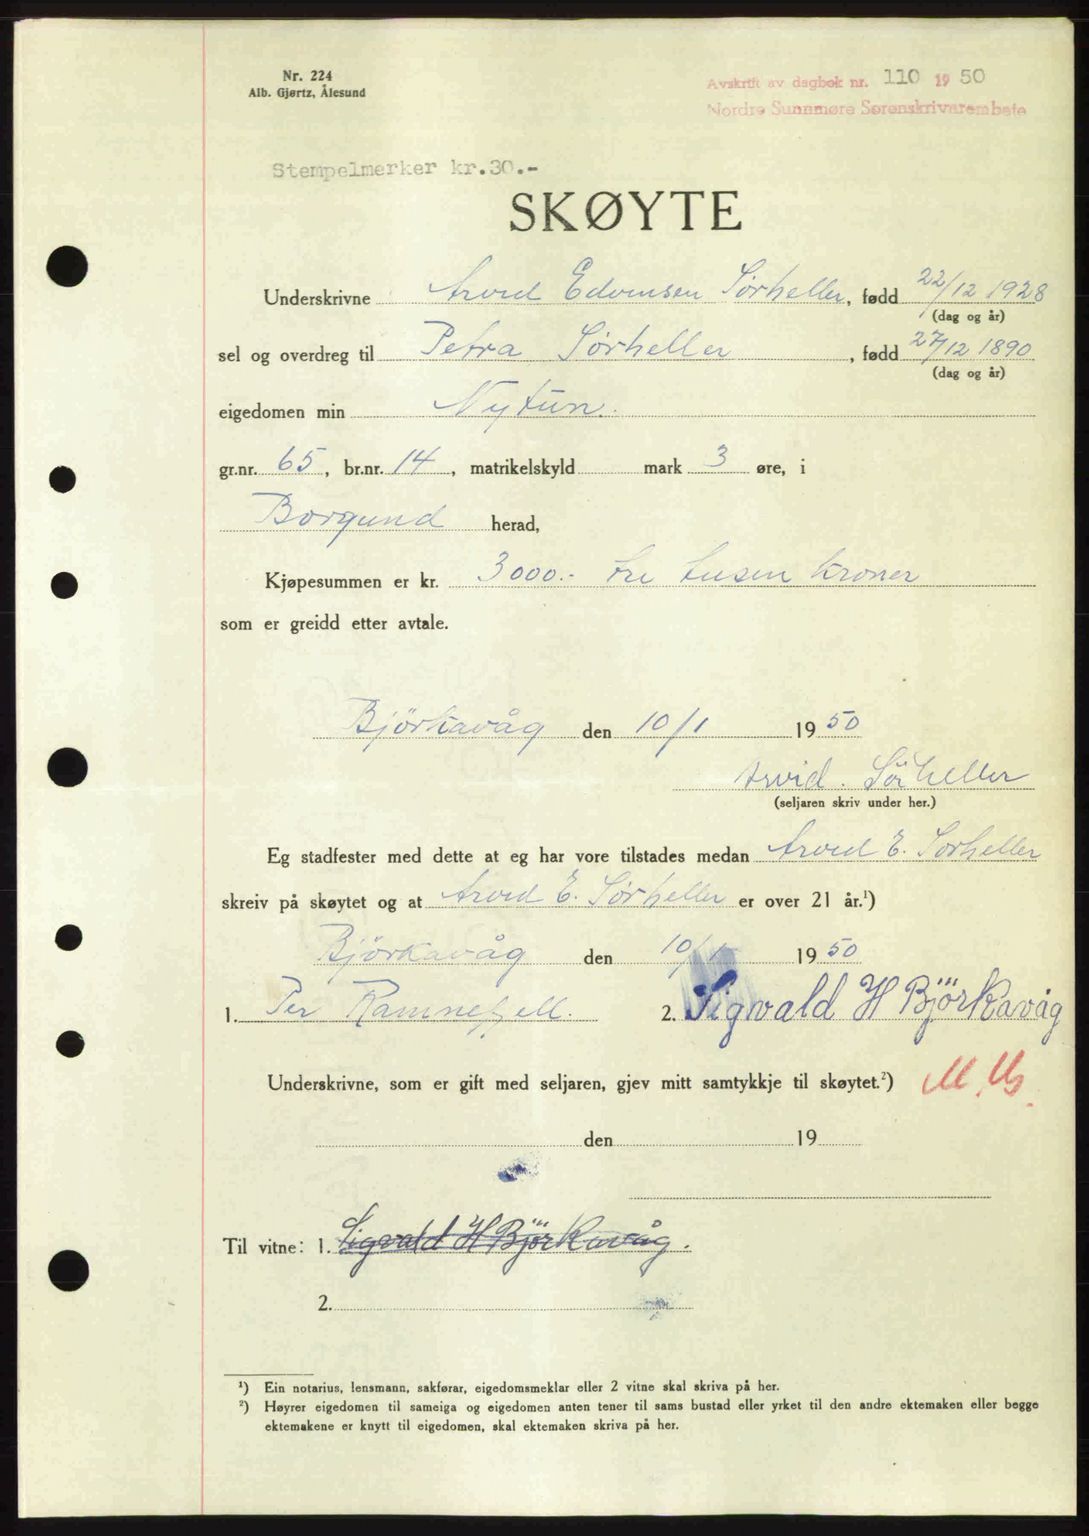 Nr. 224
Alb. Gjørtz, Ålesund
Avskrift av dagbok nr. 110 1950
Nordre Sunnmøre Sorenskrivarembete
Stempelmerker kr.30.-
SKØYTE
Underskrivne Arvid Edvinsen Sørheller, fødd 22/12 1928
(dag og år)
sel og overdreg til Petra Sørheller, fødd 27/12 1890
(dag og år)
eigedomen min Nytun.
gr.nr. 65, br.nr. 14, matrikelskyld mark 3 øre, i
Borgund herad,
Kjøpesummen er kr. 3000.- tre tusen kroner
som er greidd etter avtale.
Björkavåg den 10/1 1950
Arvid. Sörheller
(seljaren skriv under her.)
Eg stadfester med dette at eg har vore tilstades medan Arvid E. Sørheller
skreiv på skøytet og at Arvid E. Sørheller er over 21 år.¹)
Björkavåg den 10/1 1950
1. Per Ramnefjell. 2. Sigvald H Björkavåg
Underskrivne, som er gift med seljaren, gjev mitt samtykkje til skøytet.²)
den 19
Til vitne: 1. Sigvald H Björkavåg.
2.
¹) Ein notarius, lensmann, sakførar, eigedomsmeklar eller 2 vitne skal skriva på her.
²) Høyrer eigedomen til sameiga og eigedomen anten tener til sams bustad eller yrket til den andre ektemaken eller begge
ektemakene er knytt til eigedomen, skal ektemaken skriva på her.